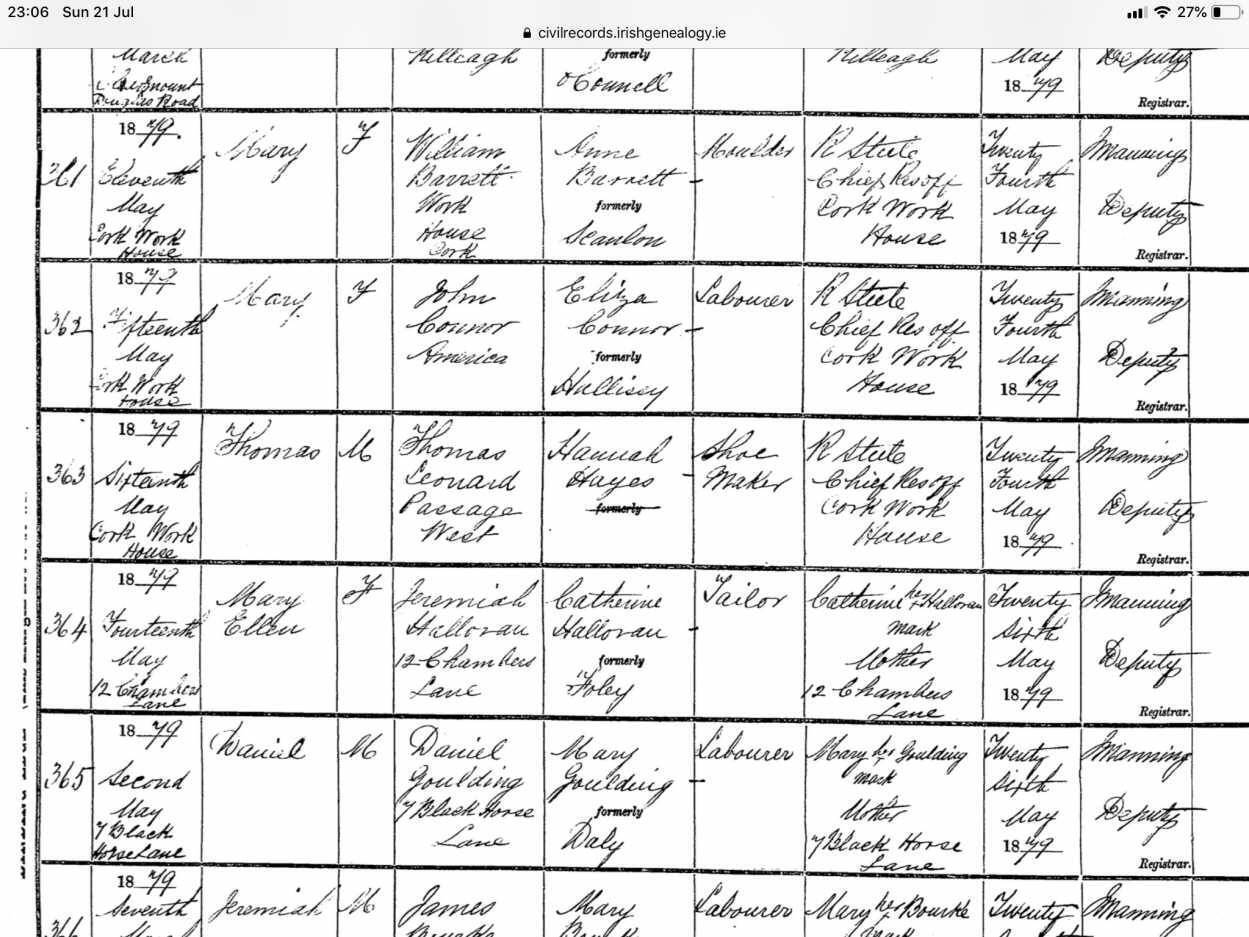 23:06 Sun 21 Jul
27%
civilrecords.irishgenealogy.ie
March
Road
Killeagh
formerly
O'Connell
Killeagh
May
1879
Deputy
Registrar.
361
1879.
Eleventh
May
Cork Work
House
Mary
F
William
Barrett
Work
House
Cork
Anne
Barrett -
formerly
Scanlon
Moulder
R Steele
Chief Res off
Cork Work
House
Twenty
Fourth
May
1879
Manning
Deputy
Registrar.
362
1879
Fifteenth
May
Cork Work
House
Mary
F
John
Connor
America
Eliza
Connor -
formerly
Hallisey
Labourer
R Steele
Chief Res off
Cork Work
House
Twenty
Fourth
May
1879
Manning
Deputy
Registrar.
363
1879
Sixteenth
May
Cork Work
House
Thomas
M
Thomas
Leonard
Passage
West
Hannah
Hayes -
formerly
Shoe
Maker
R Steele
Chief Res off
Cork Work
House
Twenty
Fourth
May
1879
Manning
Deputy
Registrar.
364
1879
Fourteenth
May
12 Chambers
Lane
Mary
Ellen
F
Jeremiah
Halloran
12 Chambers
Lane
Catherine
Halloran -
formerly
Foley
Tailor
Catherine her + Halloran
mark
Mother
12 Chambers
Lane
Twenty
Sixth
May
1879
Manning
Deputy
Registrar.
365
1879
Second
May
7 Black
Horse Lane
Daniel
M
Daniel
Goulding
7 Black Horse
Lane
Mary
Goulding -
formerly
Daly
Labourer
Mary her Goulding
mark
Mother
7 Black Horse
Lane
Twenty
Sixth
May
1879
Manning
Deputy
Registrar.
366
1879
Seventh
May
Jeremiah
M
James
Mary
Labourer
Mary her Bourke
mark
Twenty
Manning